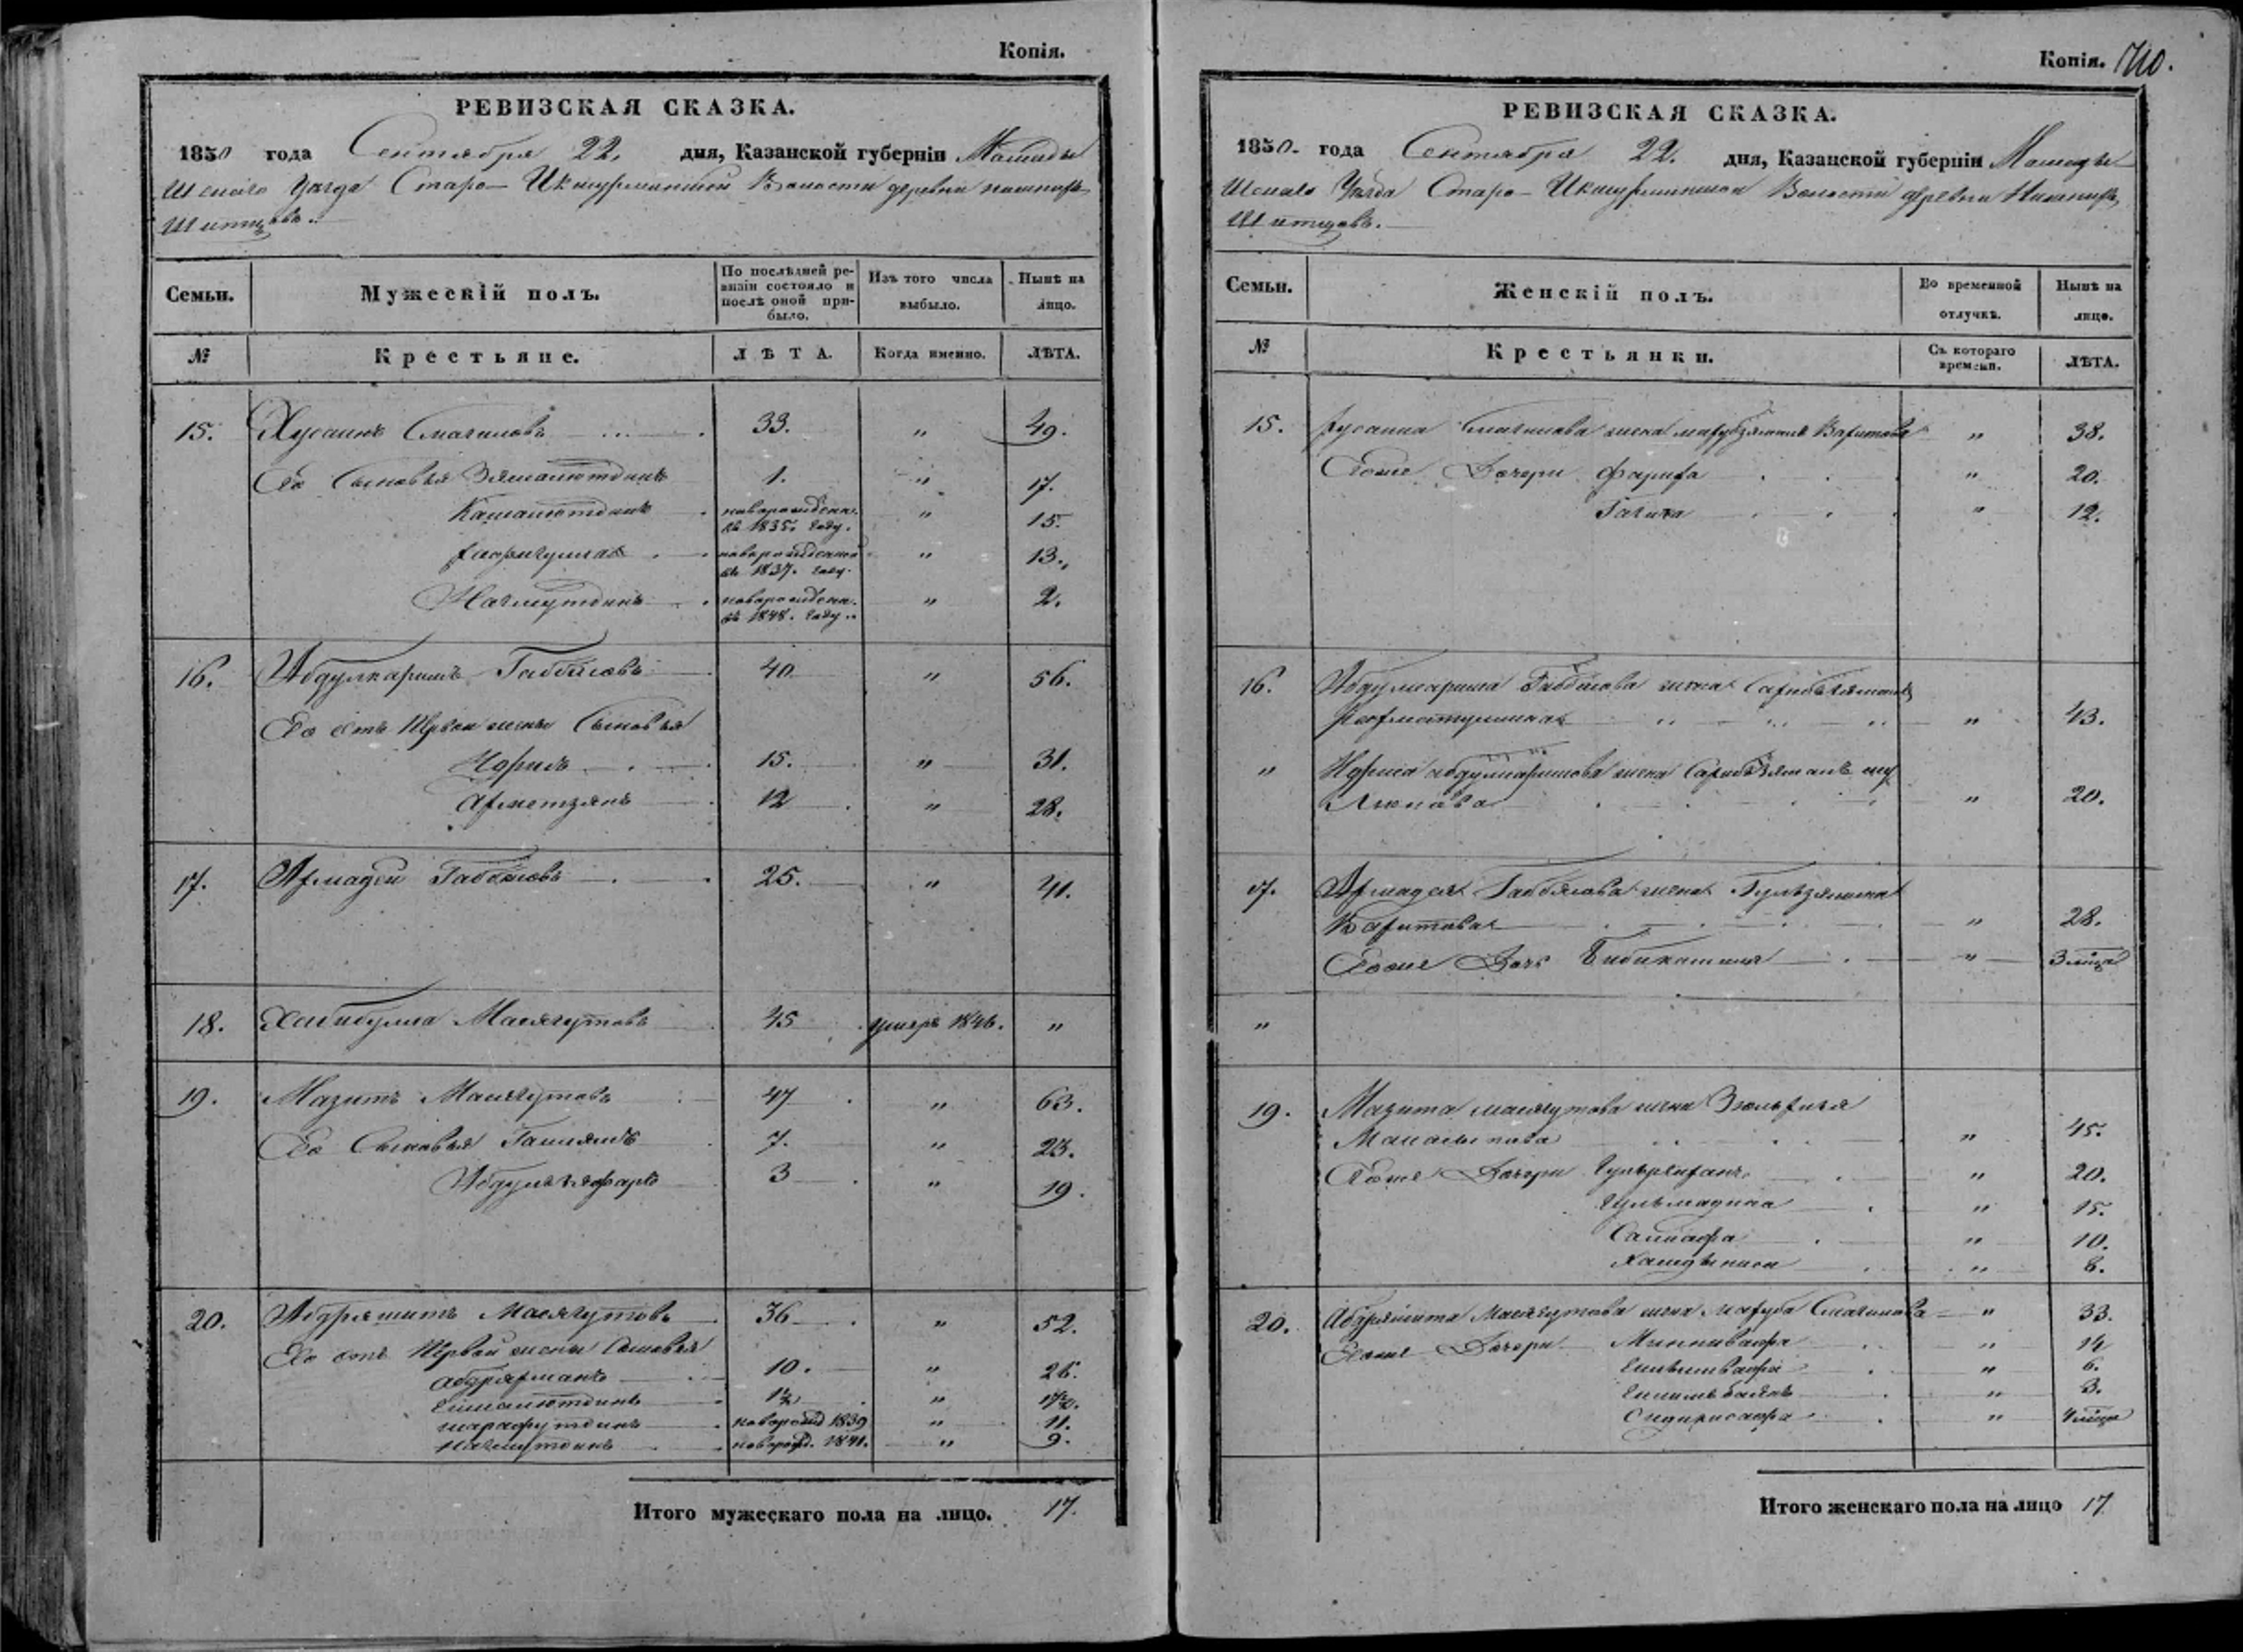 Копія.
РЕВИЗСКАЯ СКАЗКА.
1850 года Сентября 22. дня, Казанской губерніи Мамады
шскаго Уезда Старо-Икшурминской Волости деревни
Шитцовъ.
Семьи.
Мужескій полъ.
По послѣдней ре-
визіи состояло и
послѣ оной при-
было.
Изъ того числа
выбыло.
Нынѣ на
лицо.
№
Крестьяне.
ЛѢТА.
Когда именно.
ЛѢТА.
15. Хусаинъ Смагиловъ 33. " 49.
Его Сыновья Зямалютдинъ 1. " 17.
Камалютдинъ новорожден. въ 1835. году. " 15.
новорожденной въ 1837. году. " 13.
Нагмутдинъ новорожден. въ 1848. году. " 2.
16. Абдулкаримъ Габбасовъ 40 " 56.
Его отъ Первой жены Сыновья
Идрисъ 15. " 31.
Ахметзянъ 12 " 28.
17. Ахмадей Габбасовъ 25. " 41.
18. Хабибулла Масягутовъ 45 умеръ 1846. "
19. Мазитъ Масягутовъ 47 " 63.
Его Сыновья 7. " 23.
3 " 19.
20. Абдряшитъ Масягутовъ 36 " 52.
Его отъ Первой жены Сыновья
Абдряхманъ 10. " 26.
1½ " 17½.
шарафутдинъ новорожд 1839 " 11.
нагмутдинъ новорожд. 1841. " 9.
Итого мужескаго пола на лицо. 17.
Копія. 710.
РЕВИЗСКАЯ СКАЗКА.
1850. года Сентября 22. дня, Казанской губерніи Мамады
шскаго Уезда Старо-Икшурминской Волости деревни
Шитцовъ.
Семьи.
Женскій полъ.
Во временной
отлучкѣ.
Нынѣ на
лицо.
№
Крестьянки.
Съ котораго
времени.
ЛѢТА.
15. Хусаина Смагилова жена Вахитова " 38.
Ево же Дочери Фариха " 20.
" 12.
16. Абдулкарима Габбасова жена
Рахматуллина " 43.
" Идриса абдулкаримова жена
" 20.
17. Ахмадея Габбасова жена Гульзямила
Вахитова " 28.
Ево же Дочь " 3 мѣца
"
19. Мазита масягутова жена
" 45.
Ево же Дочери " 20.
Гульмадина " 15.
" 10.
" 8.
20. Абдряшита Масягутова жена Махуба Смагилова " 33.
Ево же Дочери Миннивафа " 14
" 6.
" 3.
" 4 мѣца
Итого женскаго пола на лицо 17